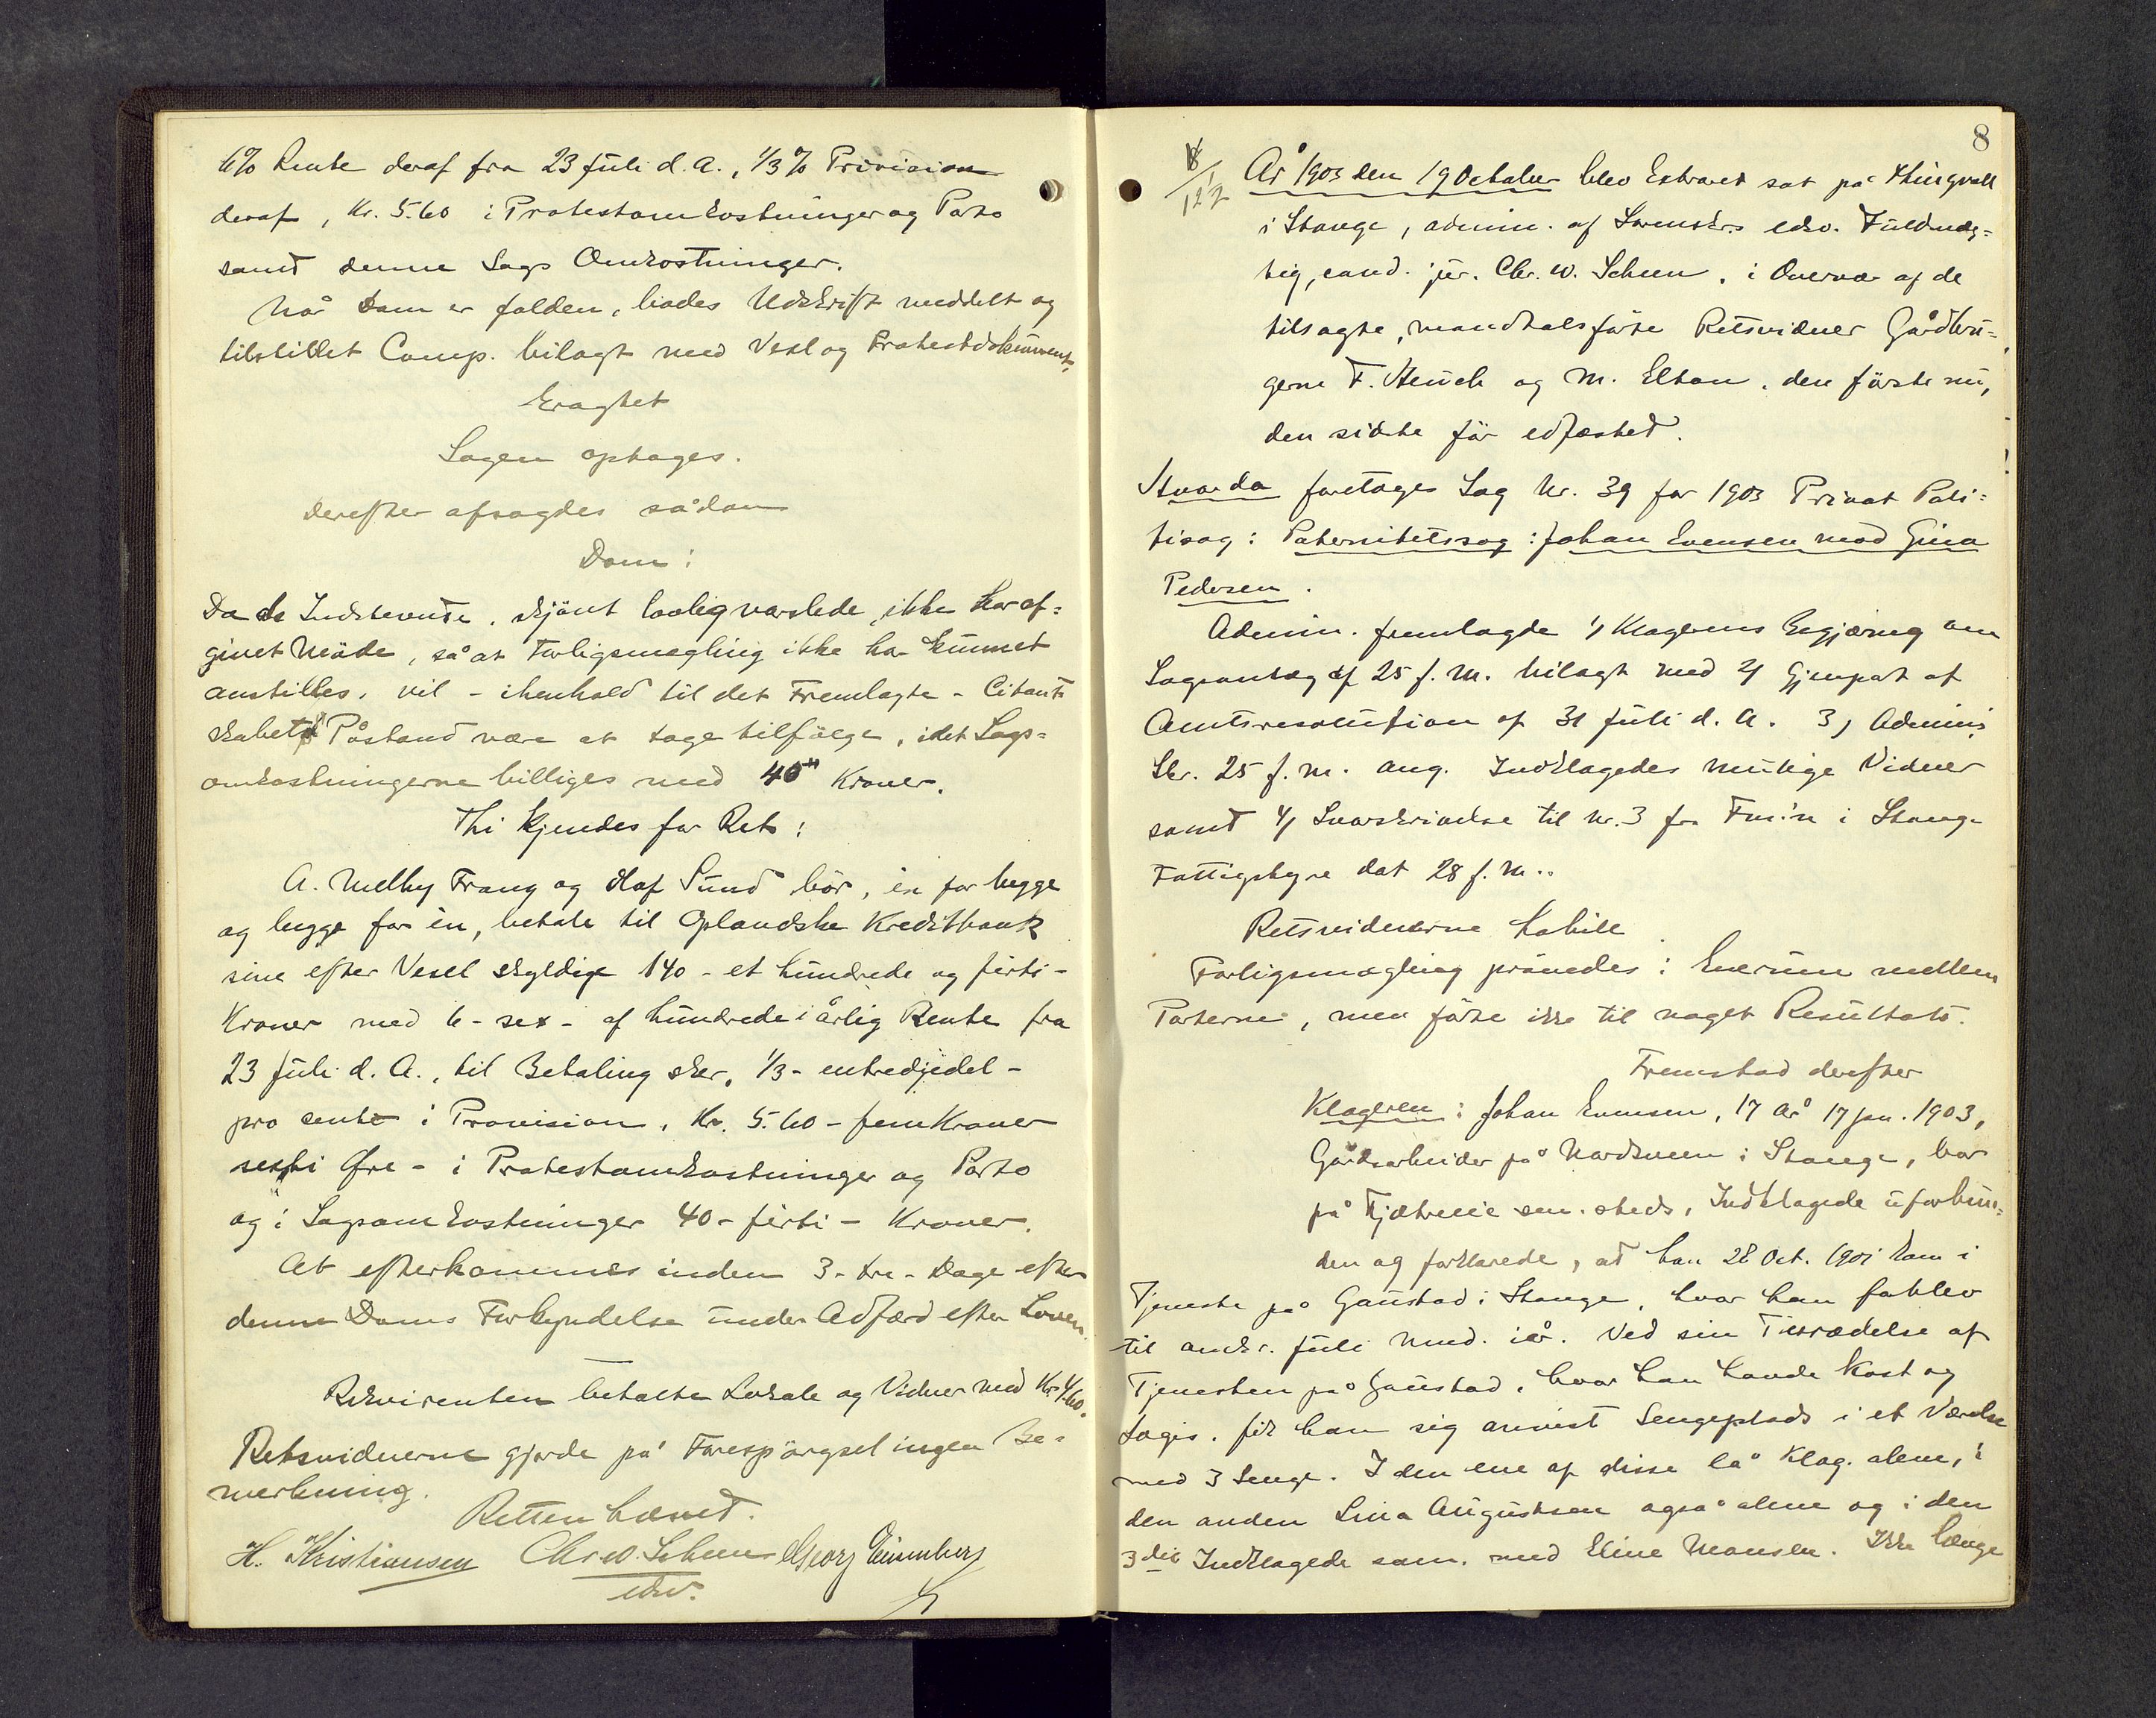 6% Rente deraf fra 23 Juli d. A., 1/3% Provision
deraf, Kr. 5.60 i Protestomkostninger og Porto
samt denne Sags Omkostninger.
Når Dom er falden, bades Udskrift meddelt og
tilstillet Comp. bilagt med Vexl og Protestdokument.
Eragtet
Sagen optages.
Derefter afsagdes sådan
Dom:
Da de Indstevnte, skjönt lovlig varslede, ikke har af=
givet Möde, så at Forligsmegling ikke har kunnet
anstilles, vil - ihenhold til det Fremlagte - Citant-
skabets Påstand være at tage tilfölge, idet Sags=
omkostningerne billiges med 40 Kroner.
Thi kjendes for Ret:
A. Melby Frang og Olaf Sund bör, én for begge
og begge for én, betale til Oplandske Kreditbank
sine efter Vexel skyldige 140 - et hundrede og firti -
Kroner med 6 - sex - af hundrede i årlig Rente fra
23 Juli d. A., til Betaling sker, 1/3 - entredjedel -
pro cent i Provision, Kr. 5.60 - fem Kroner
sexti Øre - i Protestomkostninger og Porto
og i Sagsomkostninger 40 - firti - Kroner.
At efterkommes inden 3 - tre - Dage efter
denne Doms Forkyndelse under Adfærd efter Loven.
Rekvirenten betalte Lokale og Vidner med Kr. 4.60.
Retsvidnerne gjorde på Forespörgsel ingen Be=
merkning.
Retten hævet.
H. Kristiansen Chr. W. Scheen Georg
edsv.
8
År 1903 den 19 October blev Extraret sat på Thingvold
i Stange, admin. af Sorenskr.s edsv. Fuldmæg=
tig, cand. jur. Chr. W. Scheen, i Overvær af de
tilsagte, mandtalsförte Retsvidner Gårdbru=
gerne F. Heuch og M. Elton, den förste nu,
den sidste för edfæstet.
Hvorda foretoges Sag Nr. 39 for 1903 Privat Poli=
tisag: Paternitetssag: Johan Evensen mod Gina
Pedersen.
Admin. fremlagde 1) Klagerens Begjæring om
Sagsanlæg af 25 f. M. bilagt med 2) Gjenpart af
Amtsresolution af 31 Juli d. A. 3) Admin.s
Skr. 25 f. M. ang. Indklagedes mulige Vidner
samt 4) Svarskrivelse til Nr. 3 fra Fm.n i Stange
Fattigstyre dat 28 f. M..
Retsvidnerne
Forligsmægling prövedes i Enerum mellem
Parterne, men förte ikke til noget Resultat.
Fremstod derefter
Klageren: Johan Evensen, 17 År 17 Jan. 1903,
Gårdsarbeider på i Stange, bor
på sm. steds, Indklagede uforbun=
den og forklarede, at han 28 Oct. 1901 kom i
Tjeneste på Gaustad i Stange, hvor han forblev
til Juli Mnd. iår. Ved sin Tiltrædelse af
Tjenesten på Gaustad, hvor han havde Kost og
Logis, fik han sig anvist Sengeplads i et Værelse
med 3 Senge. I den ene af disse lå Klag. alene, i
den anden Lina Augustsen også alene og i den
3die Indklagede sam. med Eline Monsen. Ikke længe